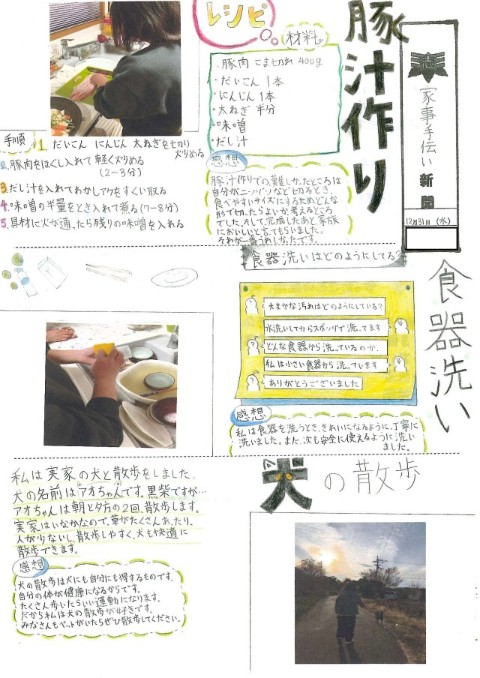 家事手伝い新聞
12月31日(水)
豚汁作り
レシピ
材料
・豚肉 こま切れ 400g
・だいこん 1本
・にんじん 1本
・太ねぎ 半分
・味噌
・だし汁
手順
1. だいこん にんじん 太ねぎをきり
炒める
2. 豚肉をほぐし入れて 軽く炒める
(2~3分)
3. だし汁を入れてわかしアクをすくい取る
4. 味噌の半量をとき入れて煮る(7~8分)
5. 具材に火が通ったら残りの味噌を入れる
感想
豚汁作りでの難しかったところは
食べやすいサイズにするためどんな
形で切ったらよいか考えるところ
でした。そして完成したあと家族
においしいと言ってもらいました。
それが一番うれしかったです。
食器洗い
食器洗いはどのようにしてる?
大まかな汚れはどのようにしている?
水洗いしてからスポンジで洗ってます
どんな食器から洗っているのか。
私は小さい食器から洗っています
ありがとうございました
感想
私は食器を洗うとき、きれいになるように、丁寧に
洗いました。また、次も安全に使えるように洗い
ました。
犬の散歩
私は実家の犬と散歩をしました。
犬の名前はアオちゃんです。黒柴ですが…
アオちゃんは朝と夕方の2回、散歩します。
実家はいなかなので、草がたくさんあったり、
人が少ないし、散歩しやすく、犬も快適に
散歩できます。
感想
犬の散歩は犬にも自分にも得するものです。
自分の体が健康になるからです。
たくさん歩いたらいい運動になります。
だから私は犬の散歩が好きです。
みなさんもペットがいたらぜひ散歩してください。